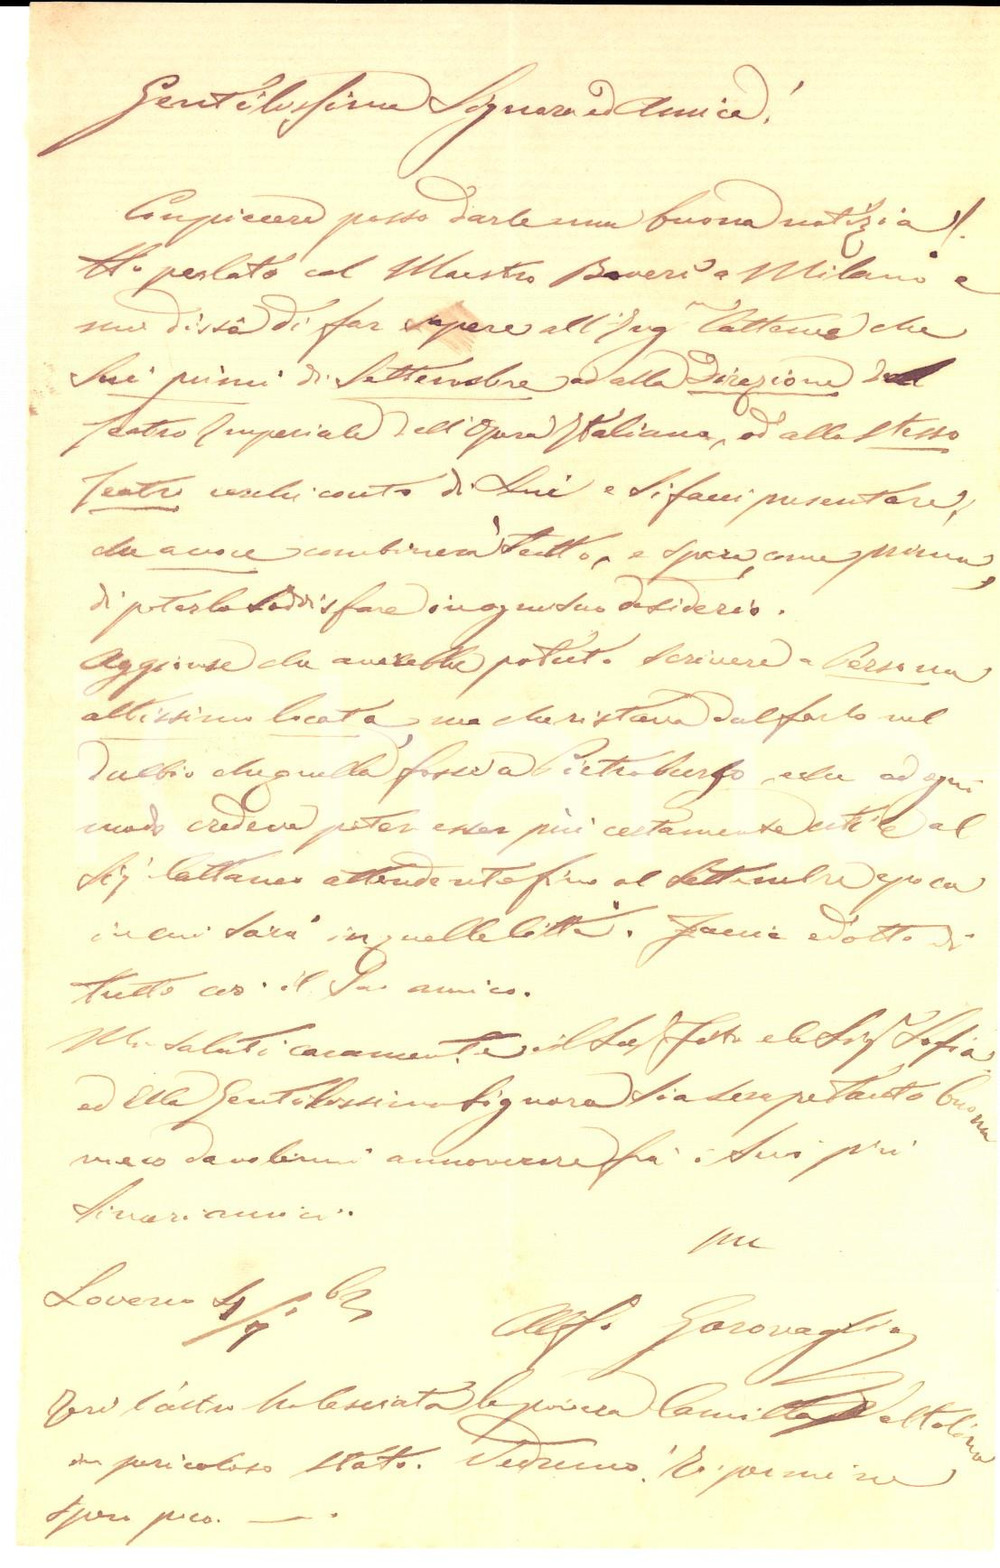 Gentilissima Signora ed Amica!
Con piacere posso darle una buona notizia!
Ho parlato col Maestro Boveri a Milano e
mi disse di far sapere all'Ing. Cattaneo che
sui primi di Settembre ad alla Direzione del
Teatro Imperiale dell'Opera Italiana, od allo stesso
Teatro conto di Lui e si facci presentare,
che a voce combinerà tutto, e spera, come prima,
di poterlo soddisfare in ogni suo desiderio.
Aggiunse che avrebbe potuto scrivere a Persona
altissimo locata, ma che ristava dal farlo nel
dubbio che quella fosse a Pietroburgo, e che ad ogni
modo credeva poter esser più certamente utile al
Sig. Cattaneo attendendo fino al Settembre epoca
in cui sarà in quella Città. Faccia edotto di
tutto ciò il Suo amico.
Mi saluti caramente il Sig. Tito e la Sig. Sofia
ed Ella Gentilissima Signora sia sempre tanto buona
meco da volermi annoverare fra i Suoi più
sinceri amici.
Loveno 4/7
Alf. Garovaglio
Ieri l'altro ho lasciata la povera Camilla Valtolina
in pericoloso stato. Vedremo! Io per me ne
spero poco.